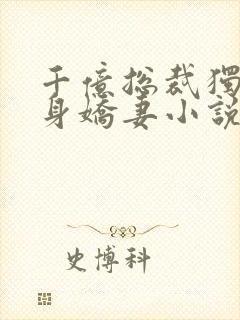 千億總裁獨
身嬌妻小說
史博科